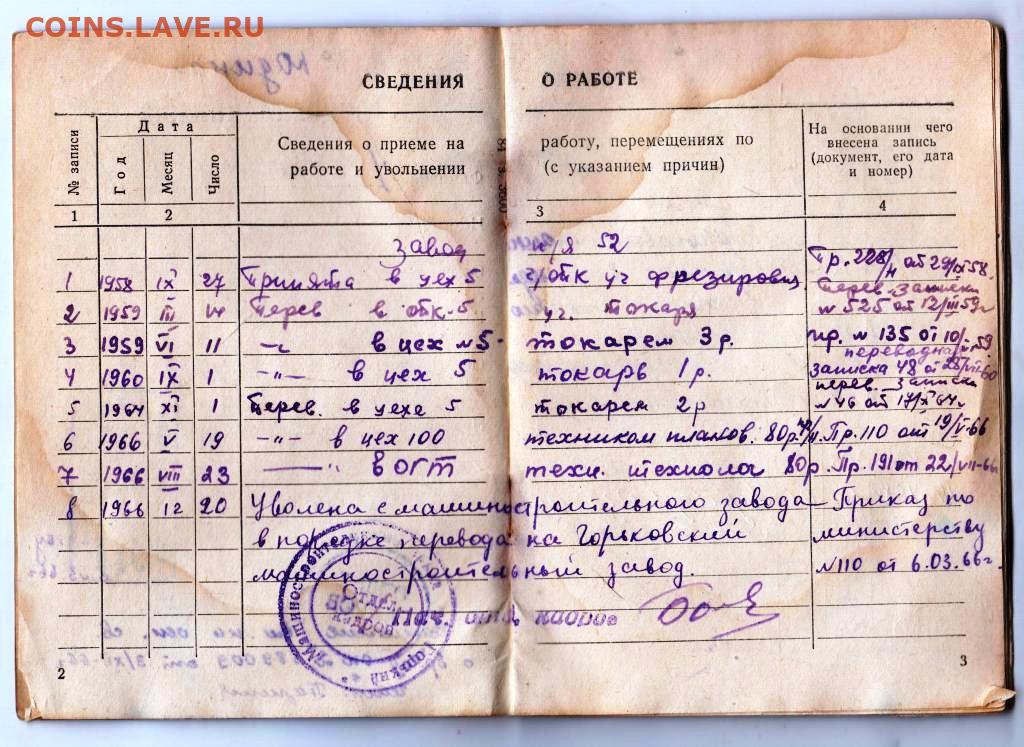 COINS.LAVE.RU
СВЕДЕНИЯ О РАБОТЕ
№ записи
Дата
Год
Месяц
Число
Сведения о приеме на работу, перемещениях по
работе и увольнении (с указанием причин)
На основании чего
внесена запись
(документ, его дата
и номер)
1 2 3 4
Завод п/я 52
1 1958 IX 27 Принята в цех 5 уч фрезировщ Пр. 228/ от 29/IX 58.
2 1959 III Перев в отк. 5 уч. токаря Перев. Записка
№ 525 от 12/III 59г
3 1959 VI 11 —"— в цех №5- токарем 3р. пр. № 135 от 10/ 59
4 1960 IX 1 —"— в цех 5 токарь 1р. переводная
записка 48 от 60
5 1964 XI 1 Перев. в цехе 5 токарем 2р перев. записка
№46 от 17/X 64г.
6 1966 V 19 —"— в цех 100 техником планов. 80р. Пр. 110 от 19/V-66
7 1966 VIII 23 —"— в ОГТ техн. технолог 80р. Пр. 191 от 22/VII-66г
8 1966 12 20 Уволена с машиностроительного завода Приказ по
в порядке перевода на Горьковский министерству
машиностроительный завод. №110 от 6.03.66г.
Нач. отд. кадров
Отдел
кадров
2 3